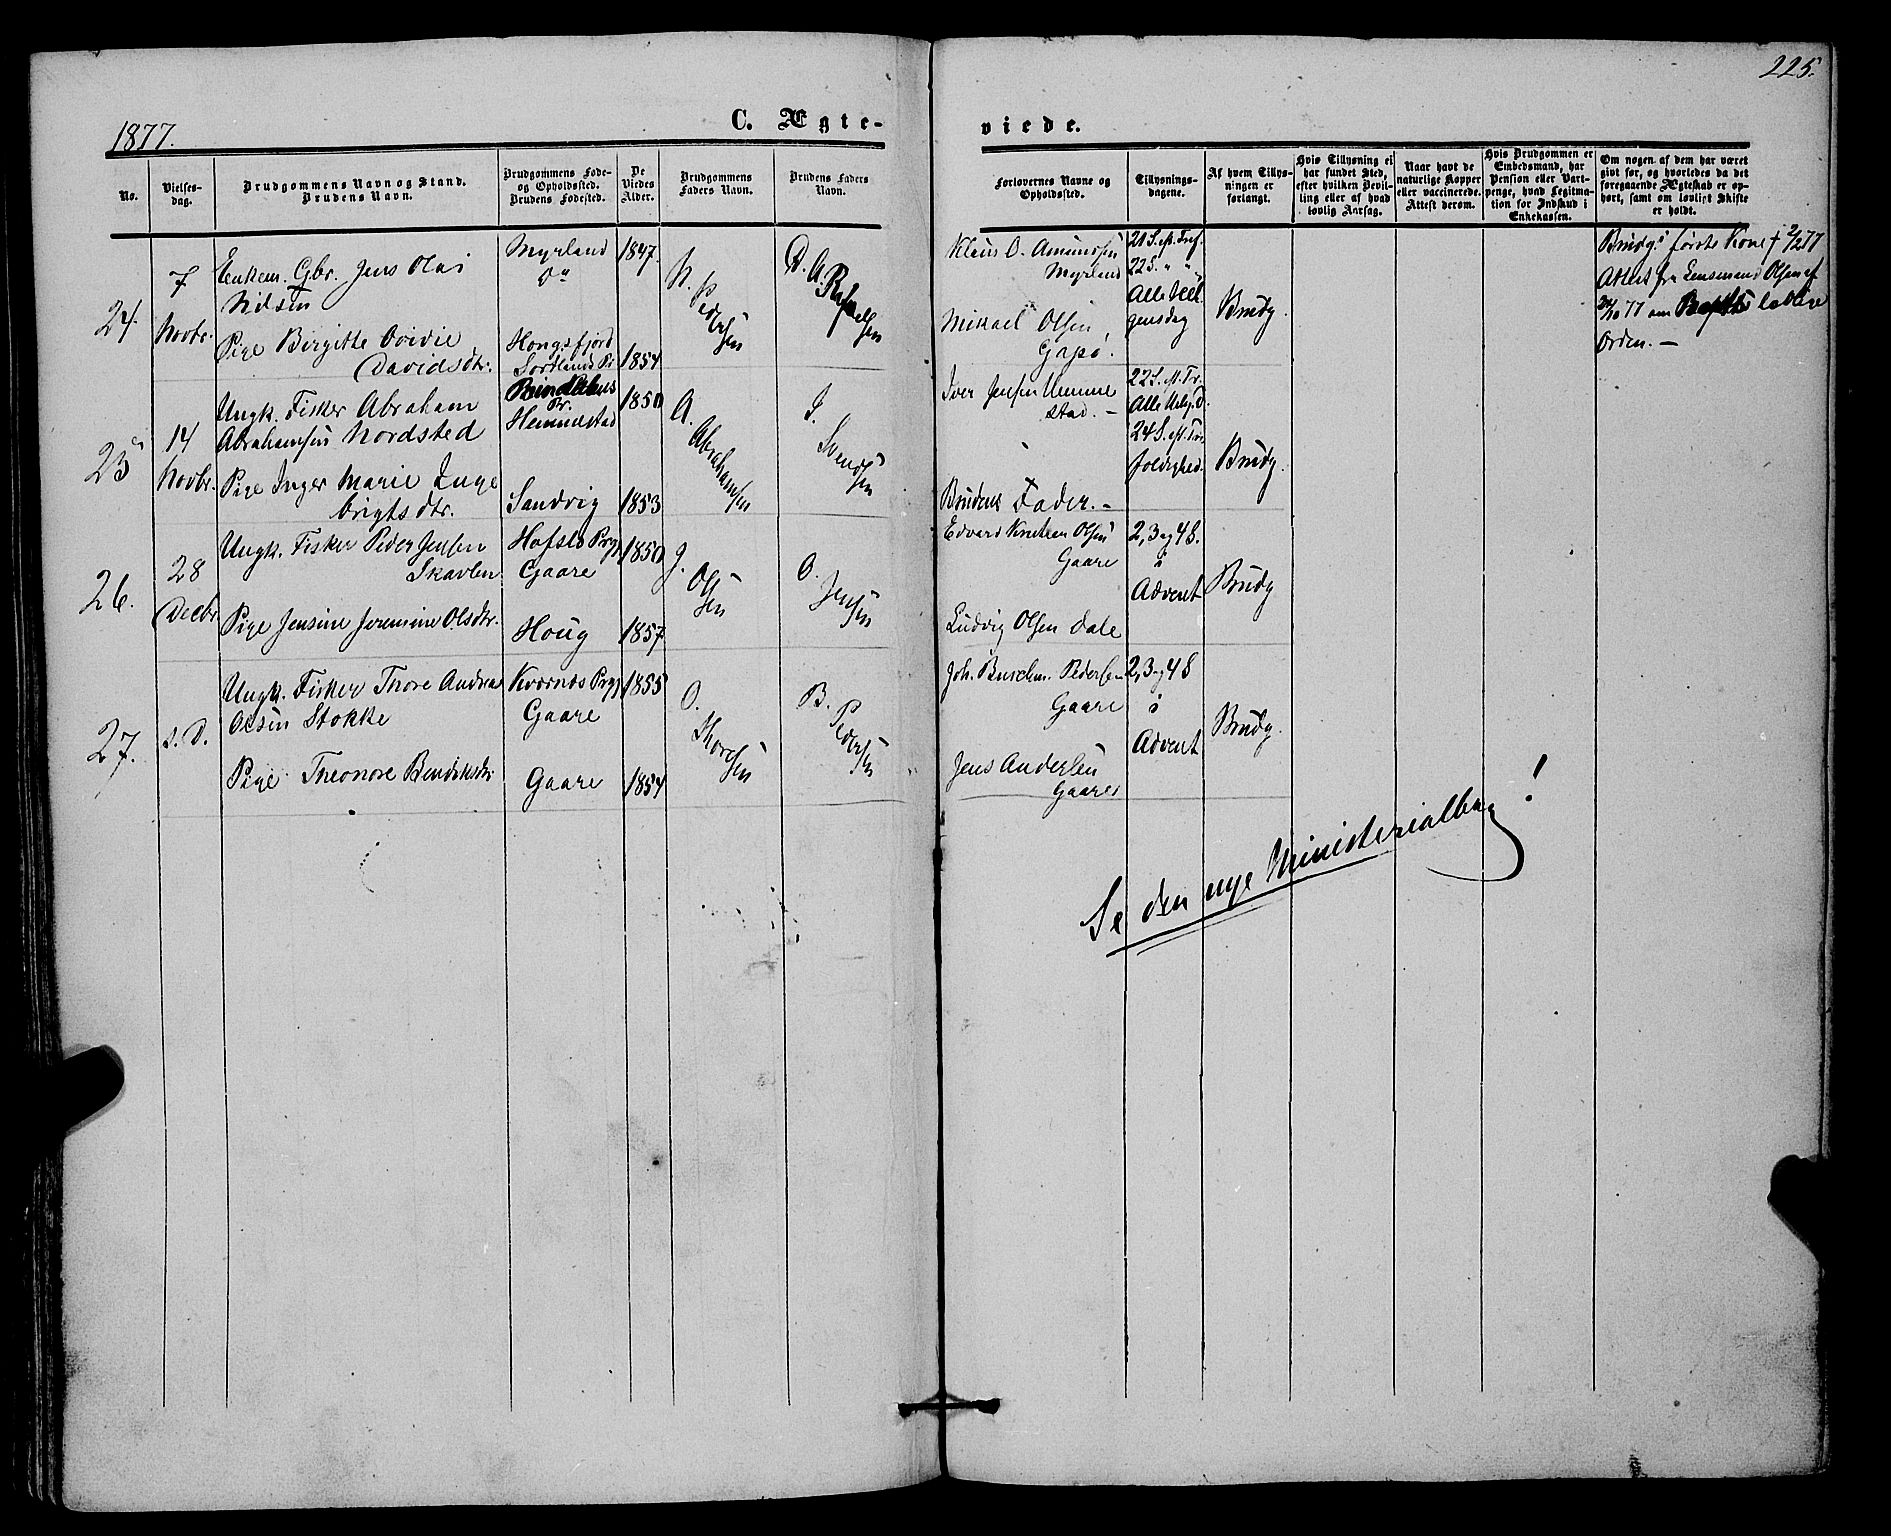 1877.
C. Ægte-
No.
Vielses-
dag.
Brudgommens Navn og Stand.
Brudens Navn.
Brudgommens Føde-
og Opholdssted.
Brudens Fødested.
De
Viedes
Alder.
Brudgommens
Faders Navn.
Brudens Faders
Navn.
24.
7
Novbr.
Enkem. Gbr. Jens Olai
Nilsen
Pige Birgitte Ovidie
Davidsdtr.
Myrland
do
Hongsfjord
Sortlands Pr
1847.
1854
N.
Pedersen
D. A.
25
14
Novbr.
Ungk. Fisker Abraham
Abrahamsen Nordsted
Pige Inger Marie Inge
brigtsdtr.
Pr.
Hemmestad
Sandvig
1850
1853
A.
Abrahamsen
I.
Svendsen
26.
28
Decbr
Ungk. Fisker Peder Jensen
Skavlen
Pige Jensine Jeremine Olsdtr.
Hafslo Prgj
Gaare
Houg
1850
1857
J.
Olsen
O.
Jensen
27.
s. D.
Ungk. Fisker Thore Andreas
Olsen Stokke
Pige Theonore Bendiksdtr
Kvernes Prgj
Gaare
Gaare
1855
1854
O.
Thoresen
B.
Pedersen
225.
viede.
Forlovernes Navne og
Opholdssted.
Tillysnings-
dagene.
Af hvem Tillys-
ningen er
forlangt.
Hvis Tillysning ei
har fundet Sted,
efter hvilken Bevil-
ling eller af hvad
lovlig Aarsag.
Naar havt de
naturlige Kopper
eller vaccinerede.
Attest derom.
Hvis Brudgommen er
Embedsmand, har
Pension eller Vart-
penge, hvad Legitima-
tion for Indskud i
Enkekassen.
Om nogen af dem har været
givt før, og hvorledes da det
foregaaende Ægteskab er op-
hørt, samt om lovligt Skifte
er holdt.
Klaus O. Amundsen
Myrland
Mikael Olsen
Gapø.
21 S. eft. Tref.
22 S. " "
Alle Hel
gensdag
Brudg.
Brudgs første Kone † 2/2 77
Attest fra Lensmand Olsen af
77 om
Orden. —
Iver Jensen Hemme
stad. —
Brudens Fader. —
22 S. eft. Tr.
Alle Helg. d.
24 S. eft. Tre
foldighed.
Brudg.
Edvard Knutsen Olsen
Gaare
Ludvig Olsen Dale
2, 3 og 4 S.
i
Advent
Brudg
Joh. Buschm. Pedersen
Gaare
Jens Andersen
Gaare
2, 3 og 4 S
i
Advent
Brudg.
Se den nye Ministerialbog!